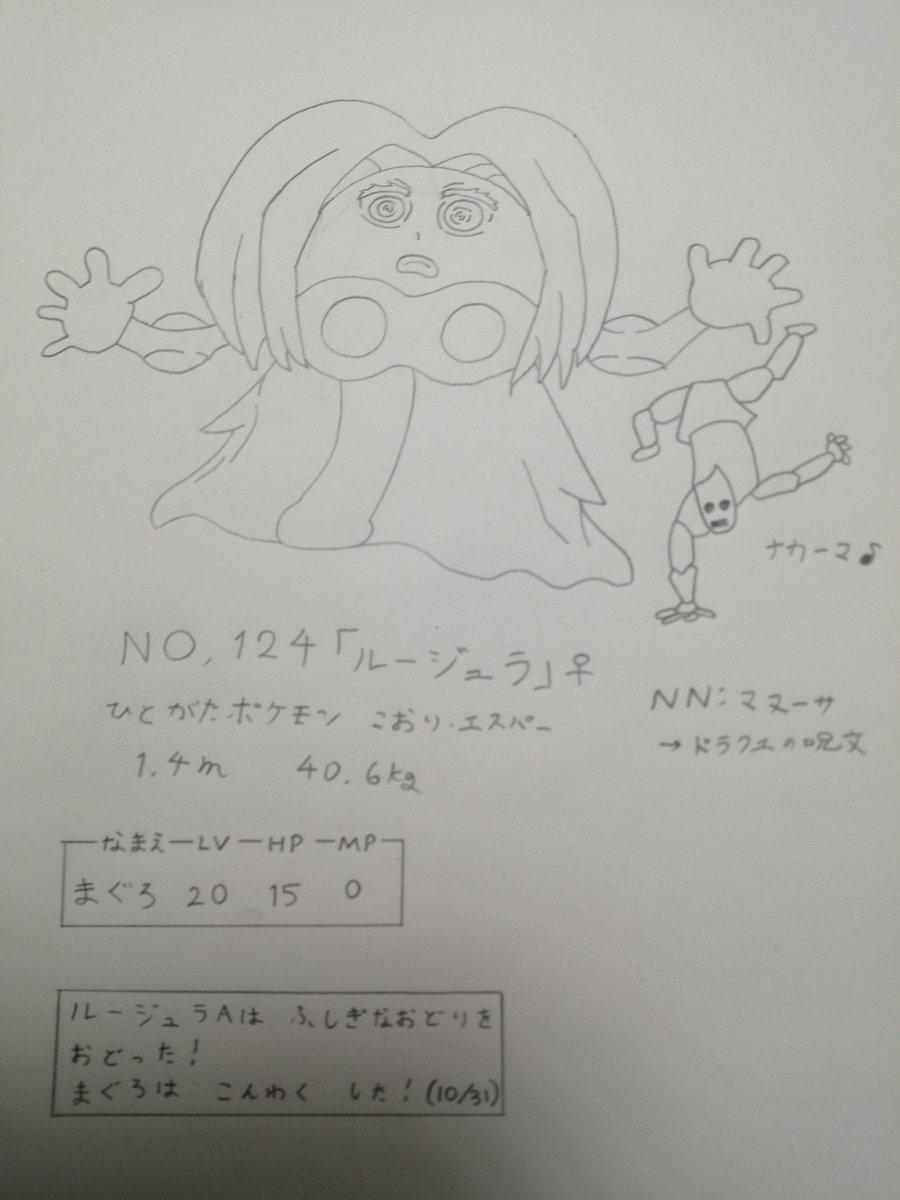 ナカーマ♪
NO, 124「ルージュラ」♀
ひとがたポケモン こおり・エスパー
1.4m 40.6kg
NN:マヌーサ
→ドラクエの呪文
なまえ LV HP MP
まぐろ 20 15 0
ルージュラAは ふしぎなおどりを
おどった!
まぐろは こんわく した!(10/31)